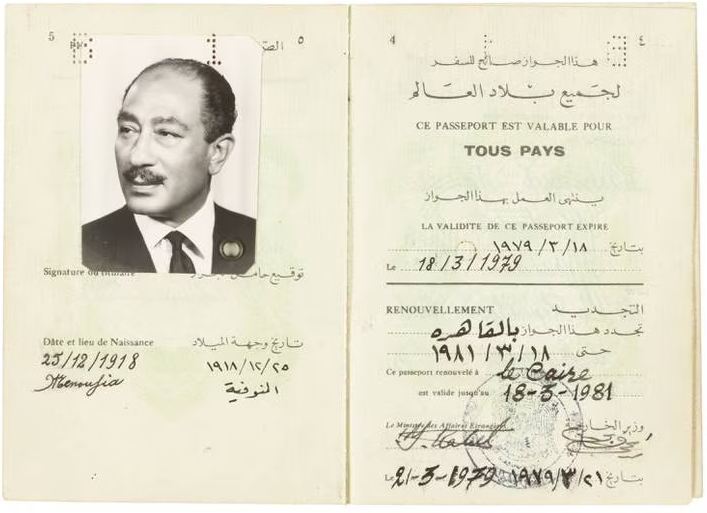 5
٥
توقيع حامل
Signature ou titulaire
Dâte et lieu de Naissance
تاريخ وجهة الميلاد
25/12/1918
١٩١٨/١٢/٢٥
Menoufia
المنوفية
4
٤
هذا الجواز صالح للسفر
لجميع بلاد العالم
CE PASSEPORT EST VALABLE POUR
TOUS PAYS
ينتهى العمل بهذا الجواز
LA VALIDITE DE CE PASSEPORT EXPIRE
بتاريخ ١٩٧٩/٣/١٨
Le 18/3/1979
RENOUVELLEMENT
التجديد
تجدد هذا الجواز بالقاهره
حتى ١٩٨١/٣/١٨
Ce passeport renouvelé à le Caire
est valide jusqu'au 18-3-1981
Le Ministre des Affaires Etrangères
وزير الخارجية
Le 21-3-1979
بتاريخ ١٩٧٩/٣/٢١